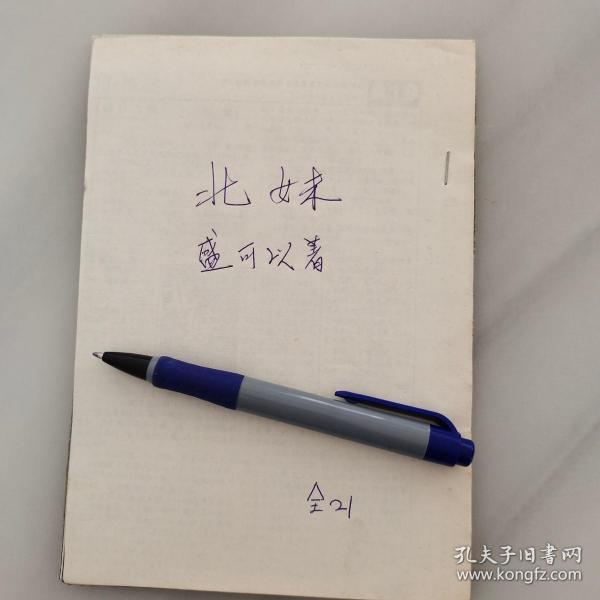 北妹
盛可以着
全21
孔夫子旧书网
www.kongfz.com